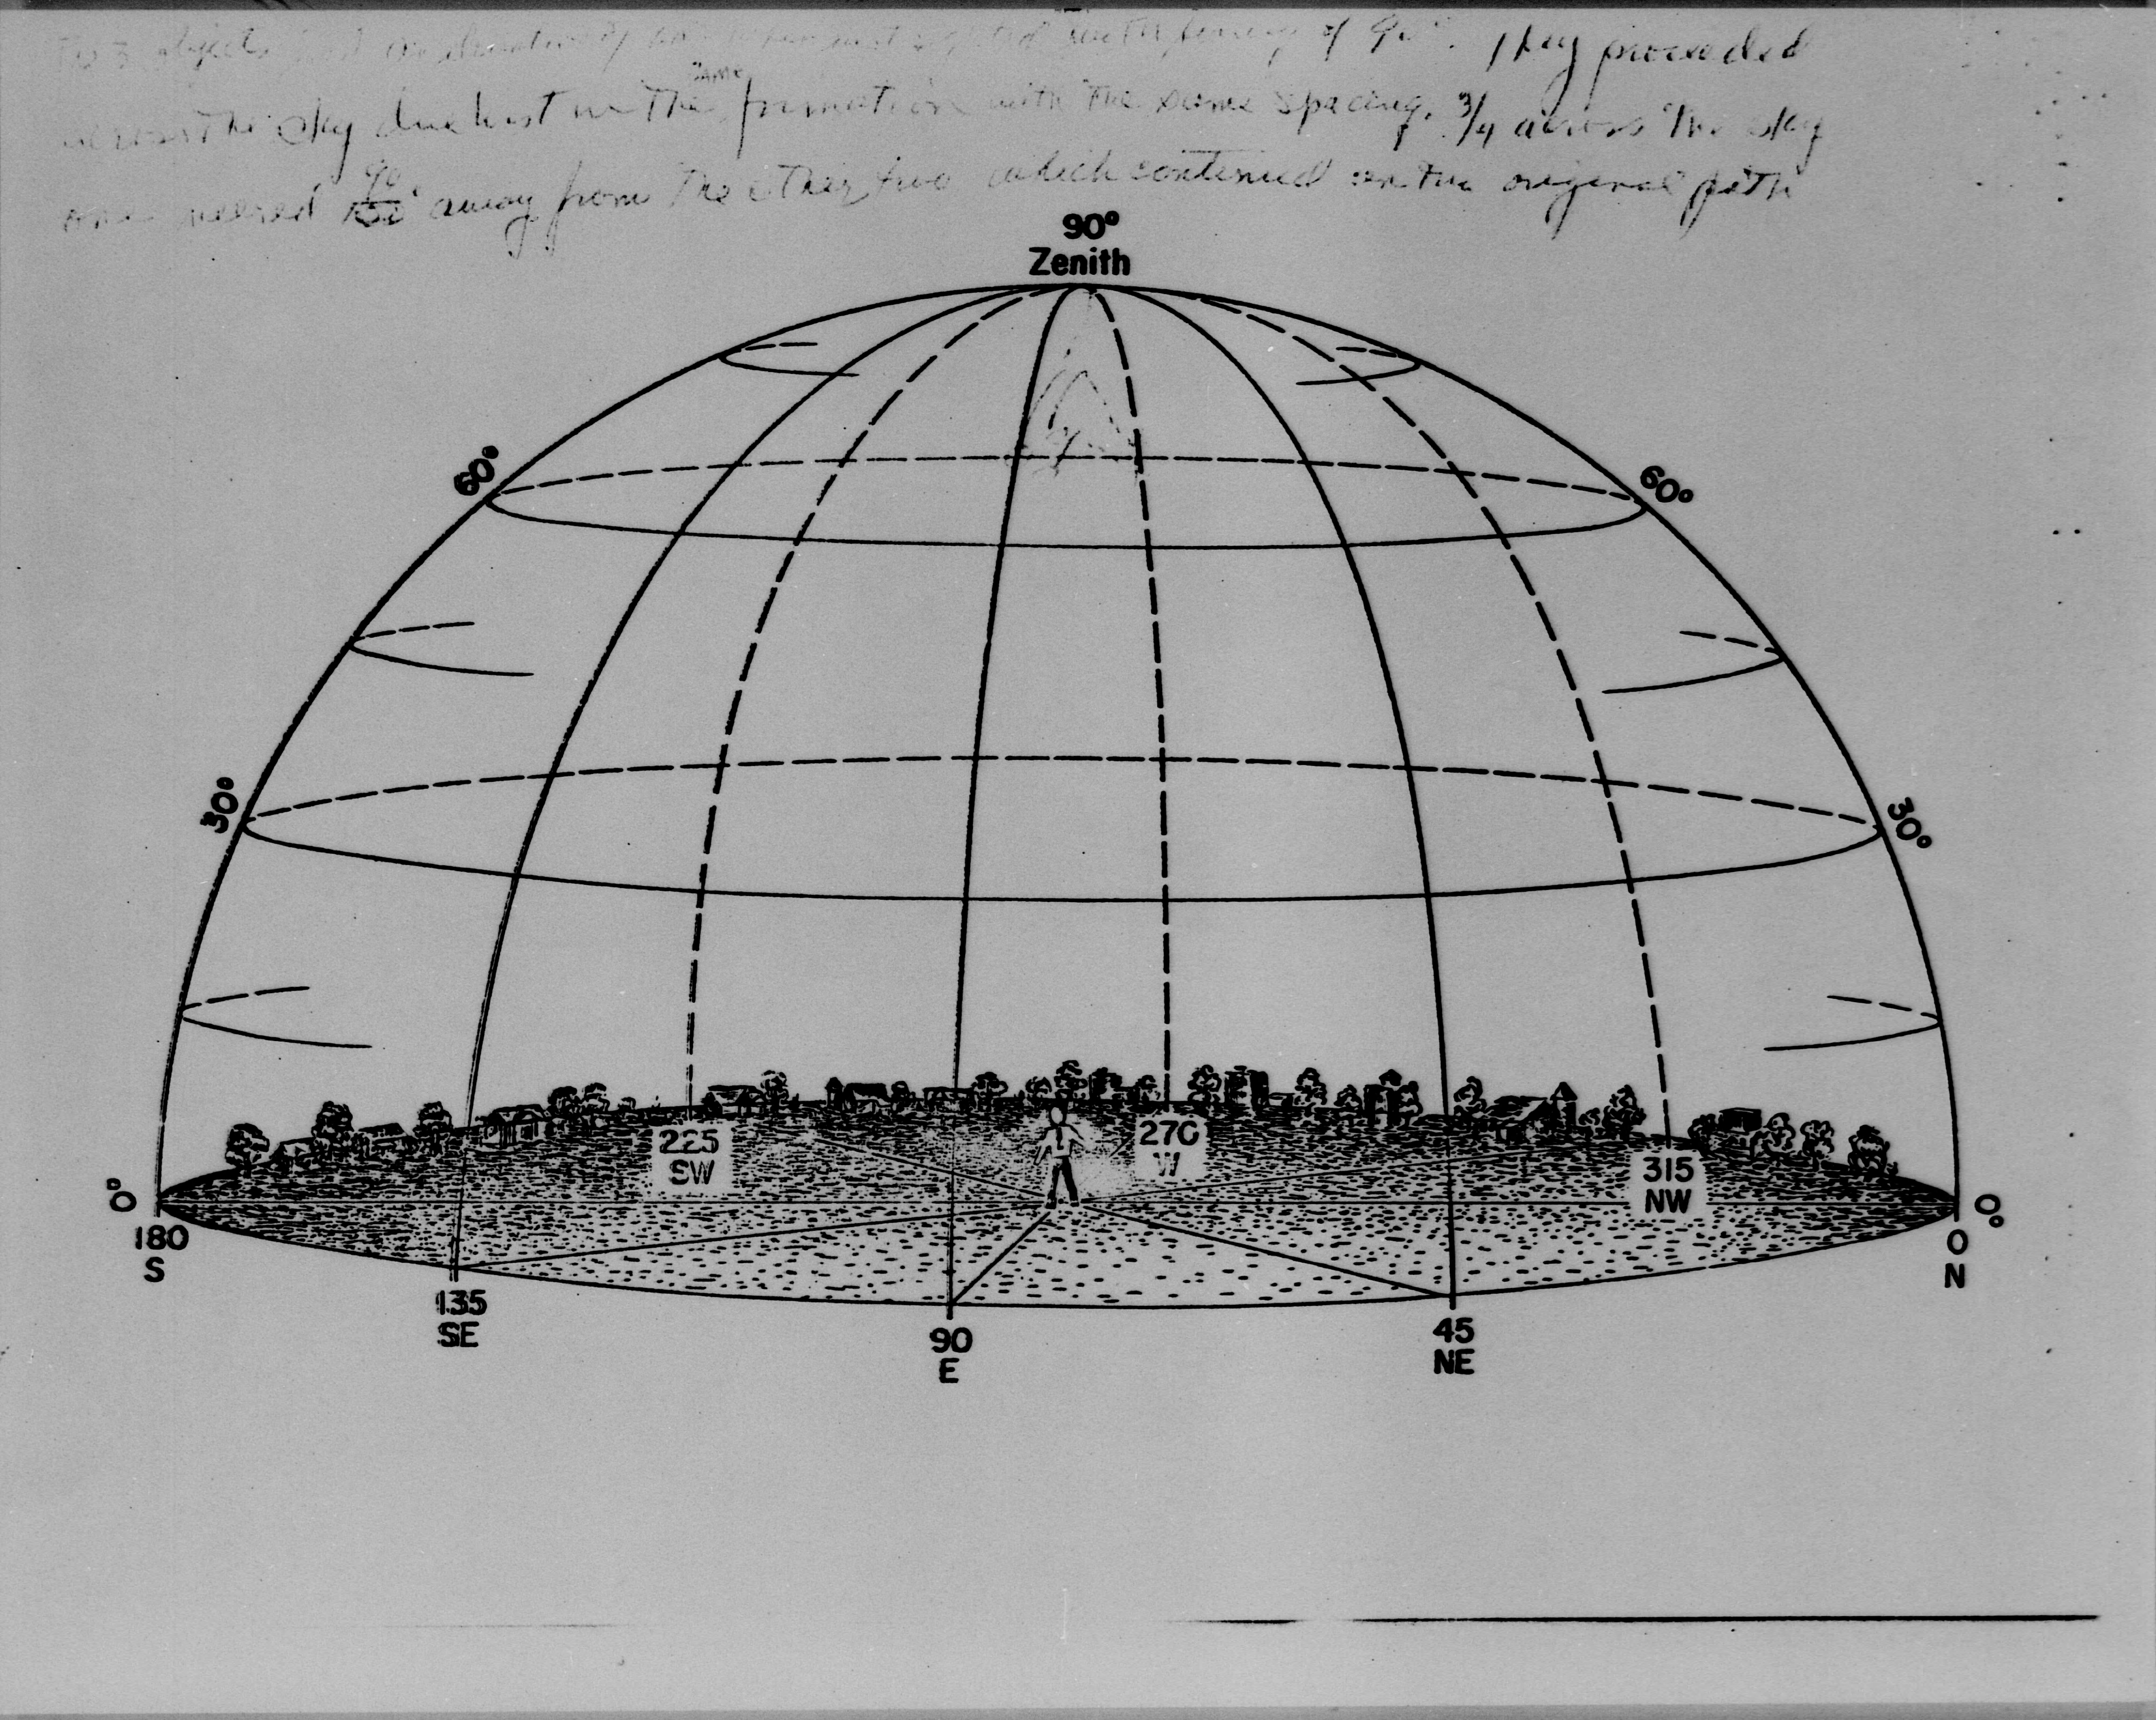 objects of 90°. They proceeded
across the sky due in the same formation with the same spacing. 3/4 across the sky
one 90° away from the other two which continued on the original path
90°
Zenith
60° 60°
30° 30°
225 270
SW W
315
NW
0° 0°
180 0
S N
135
SE
90 45
E NE